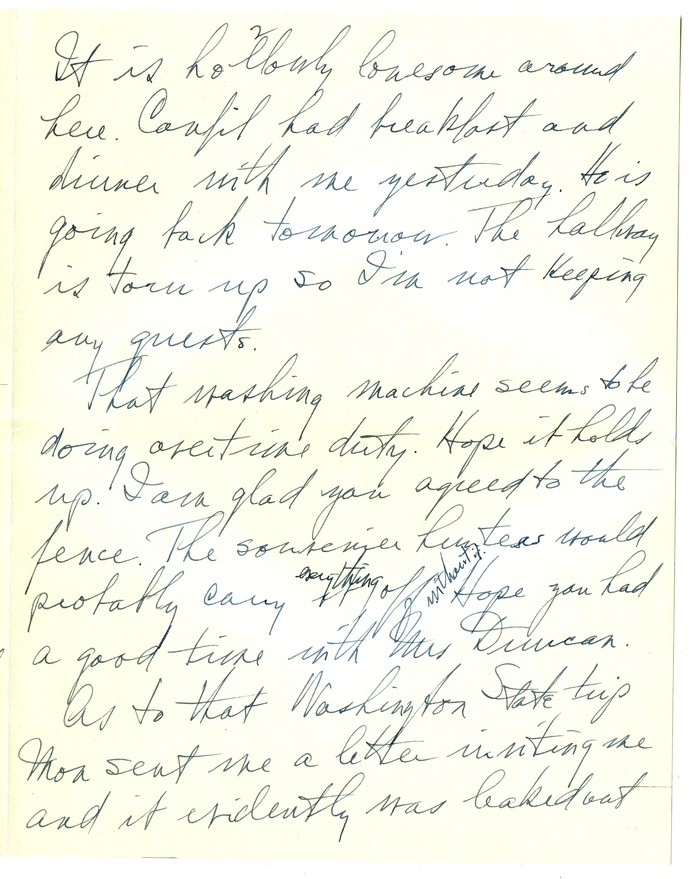 It is hollowly lonesome around
here. Canfil had breakfast and
dinner with me yesterday. He is
going back tomorrow. The hallway
is torn up so I'm not keeping
any guests.
That washing machine seems to be
doing overtime duty. Hope it holds
up. I am glad you agreed to the
fence. The souvenier hunters would
probably carry everything off without it. Hope you had
a good time with Mrs Duncan.
As to that Washington State trip
Mon sent me a letter inviting me
and it evidently was leaked out